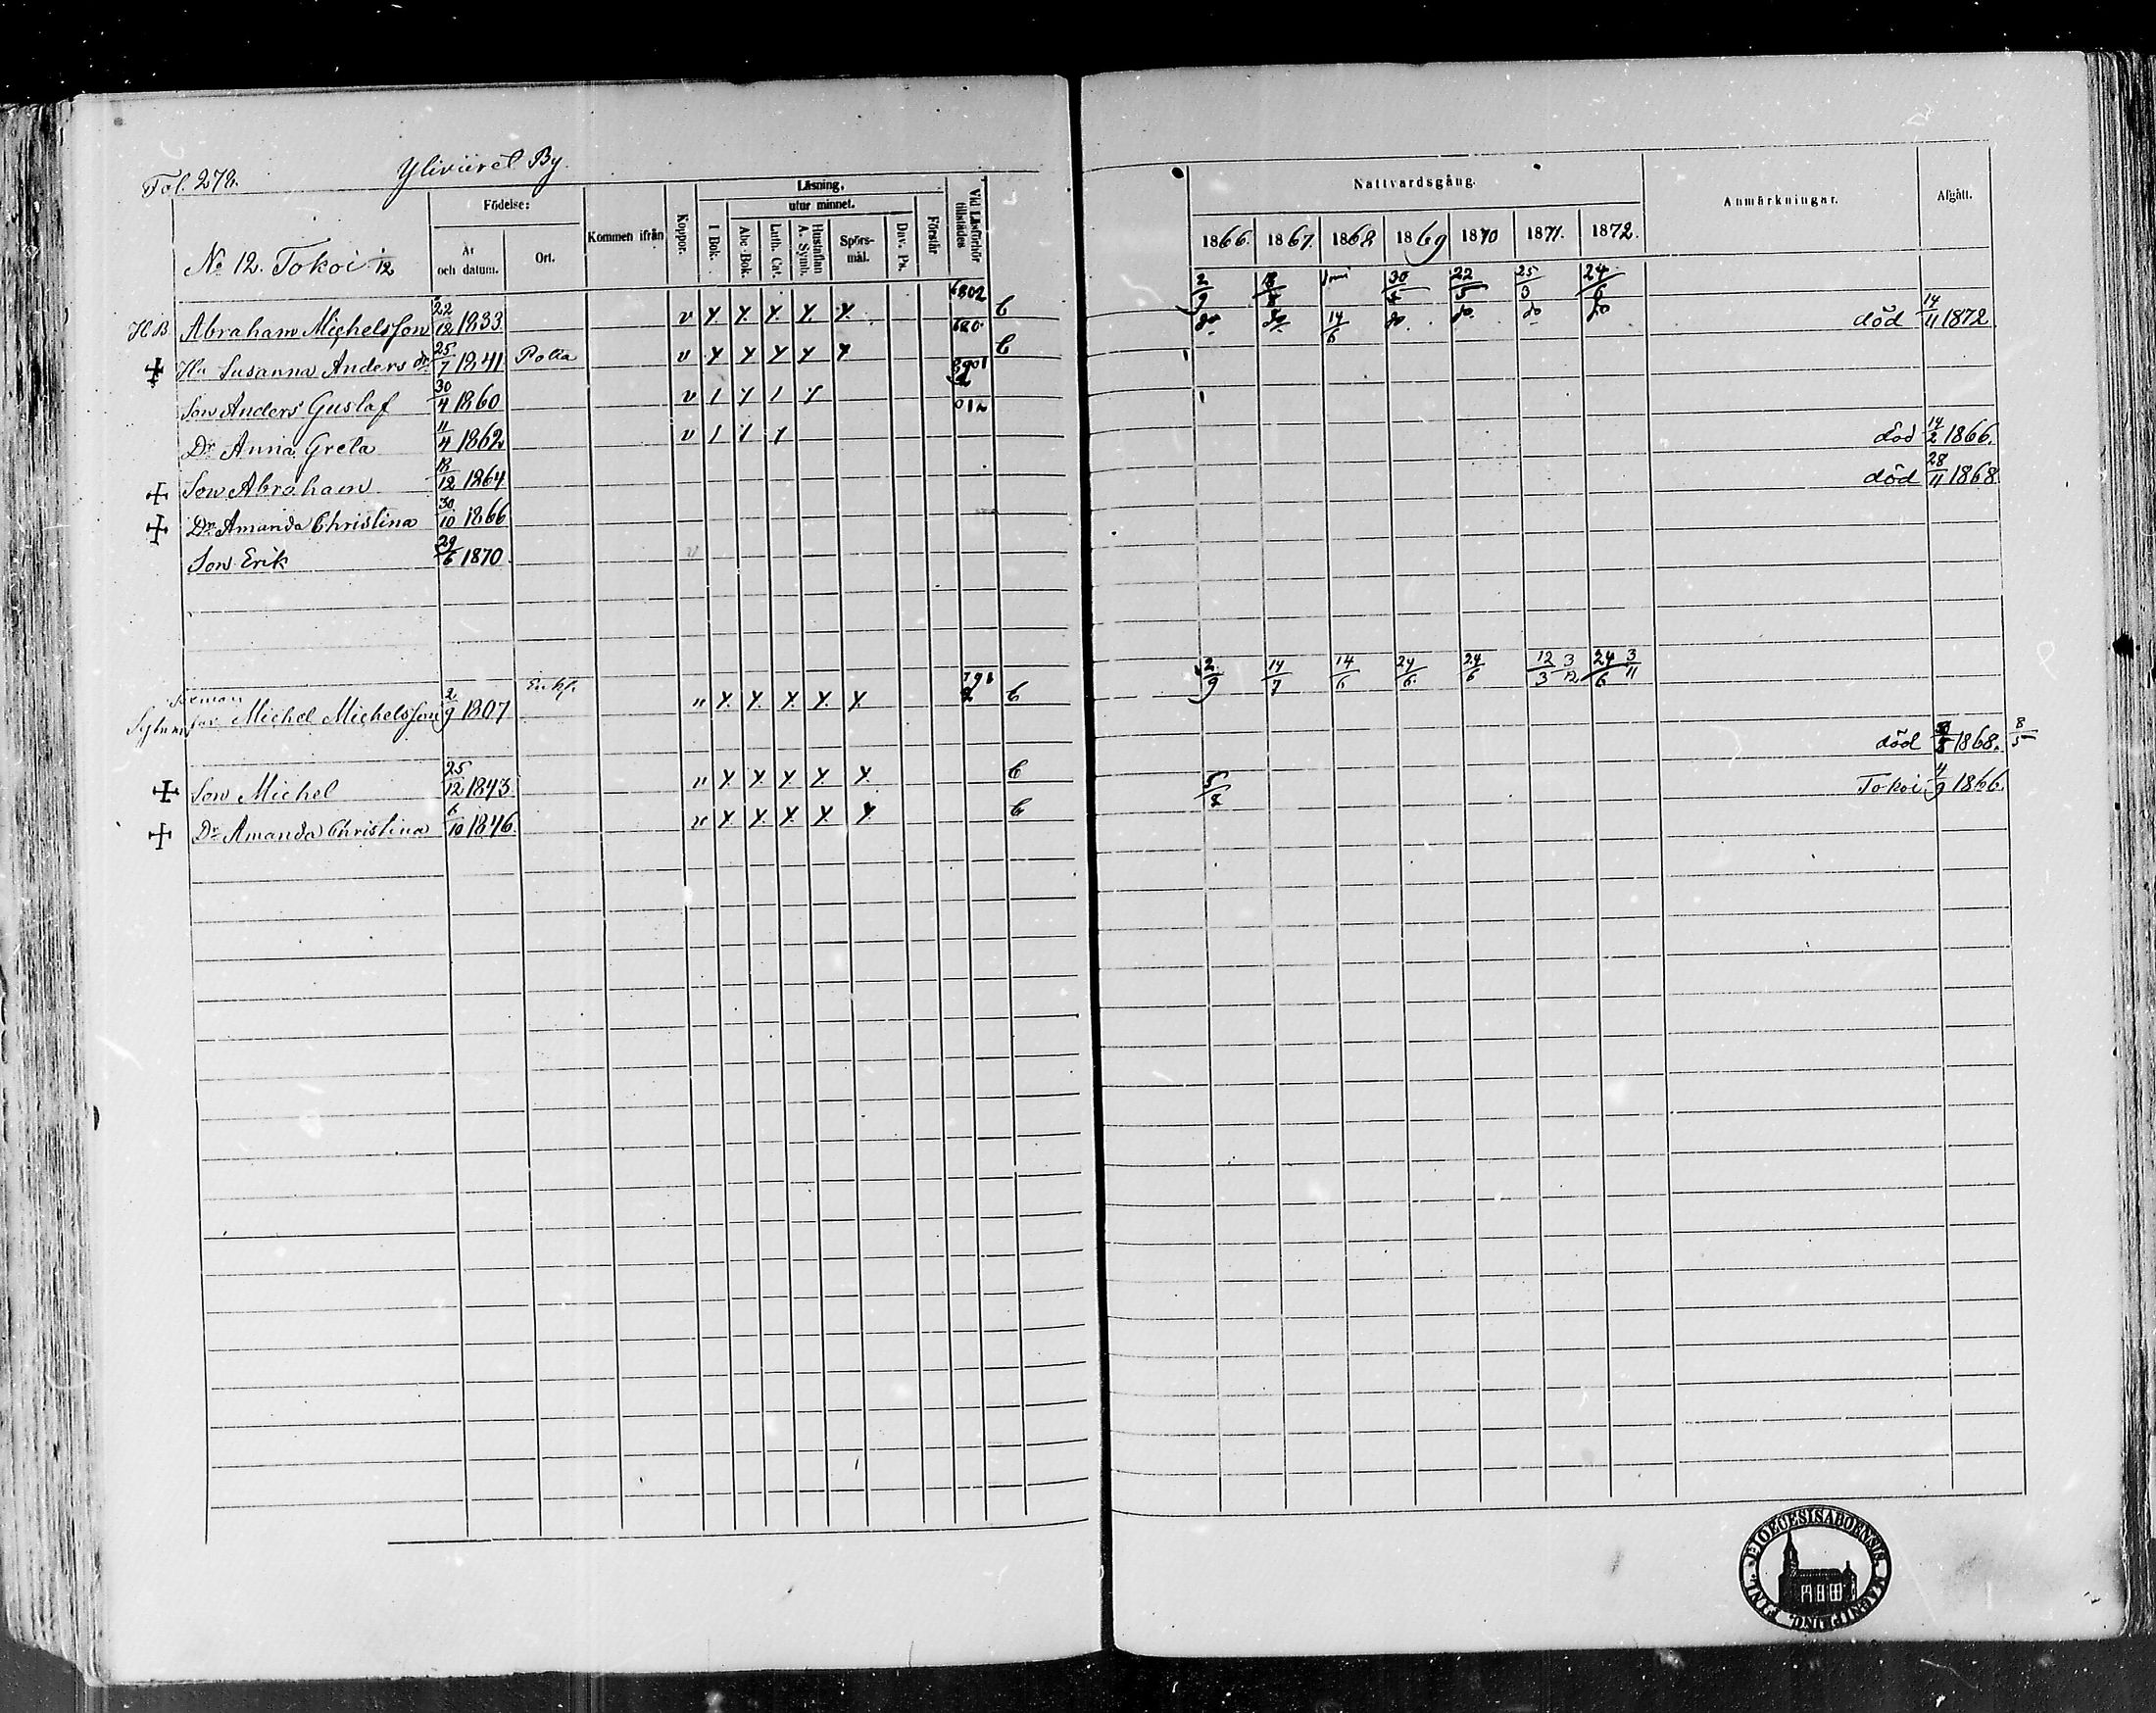 Fol. 278. Yliviiret By.
Födelse: Kommen ifrån Koppor. Läsning. Vid Läsförhör tillstädes
År och datum. Ort. I Bok. utur minnet. Förstår
Abc-Bok. Luth. Cat. Hustaflan A. Symb. Spörs-mål. Dav. Ps.
Nattvardsgång. Anmärkningar. Afgått.
1866. 1867. 1868 1869 1870 1871. 1872.
No 12. Tokoi 1/12
2/9 30/5 22/5 25/3 24/6
HB Abraham Michelsson 22/12 1833 v x x x x x 6802 b
do do 14/6 do do do do död 14/11 1872
Hu Susanna Andersdr 25/7 1841 Polla v x x x x x 680 b
Son Anders Gustaf 30/4 1860 v
Dr Anna Greta 11/4 1862 v 012
Son Abraham 12 1864 död 14/2 1866.
Dr Amanda Christina 30/10 1866 död 28/11 1868
Son Erik 29/6 1870 v
Enkl.
Michel Michelsson 2/9 1807 x x x x x b
2/9 14/7 14/6 24/6 24/6 12/3 3/12 24/6 3/11
Son Michel 25/12 1843 x x x x x b död 1868. 8/5
Dr Amanda Christina 6/10 1846 v x x x x x b 5/8 Tokoi 4/9 1866.
FINL. DIOECESIS ABOENSIS MAGNI PRINC.